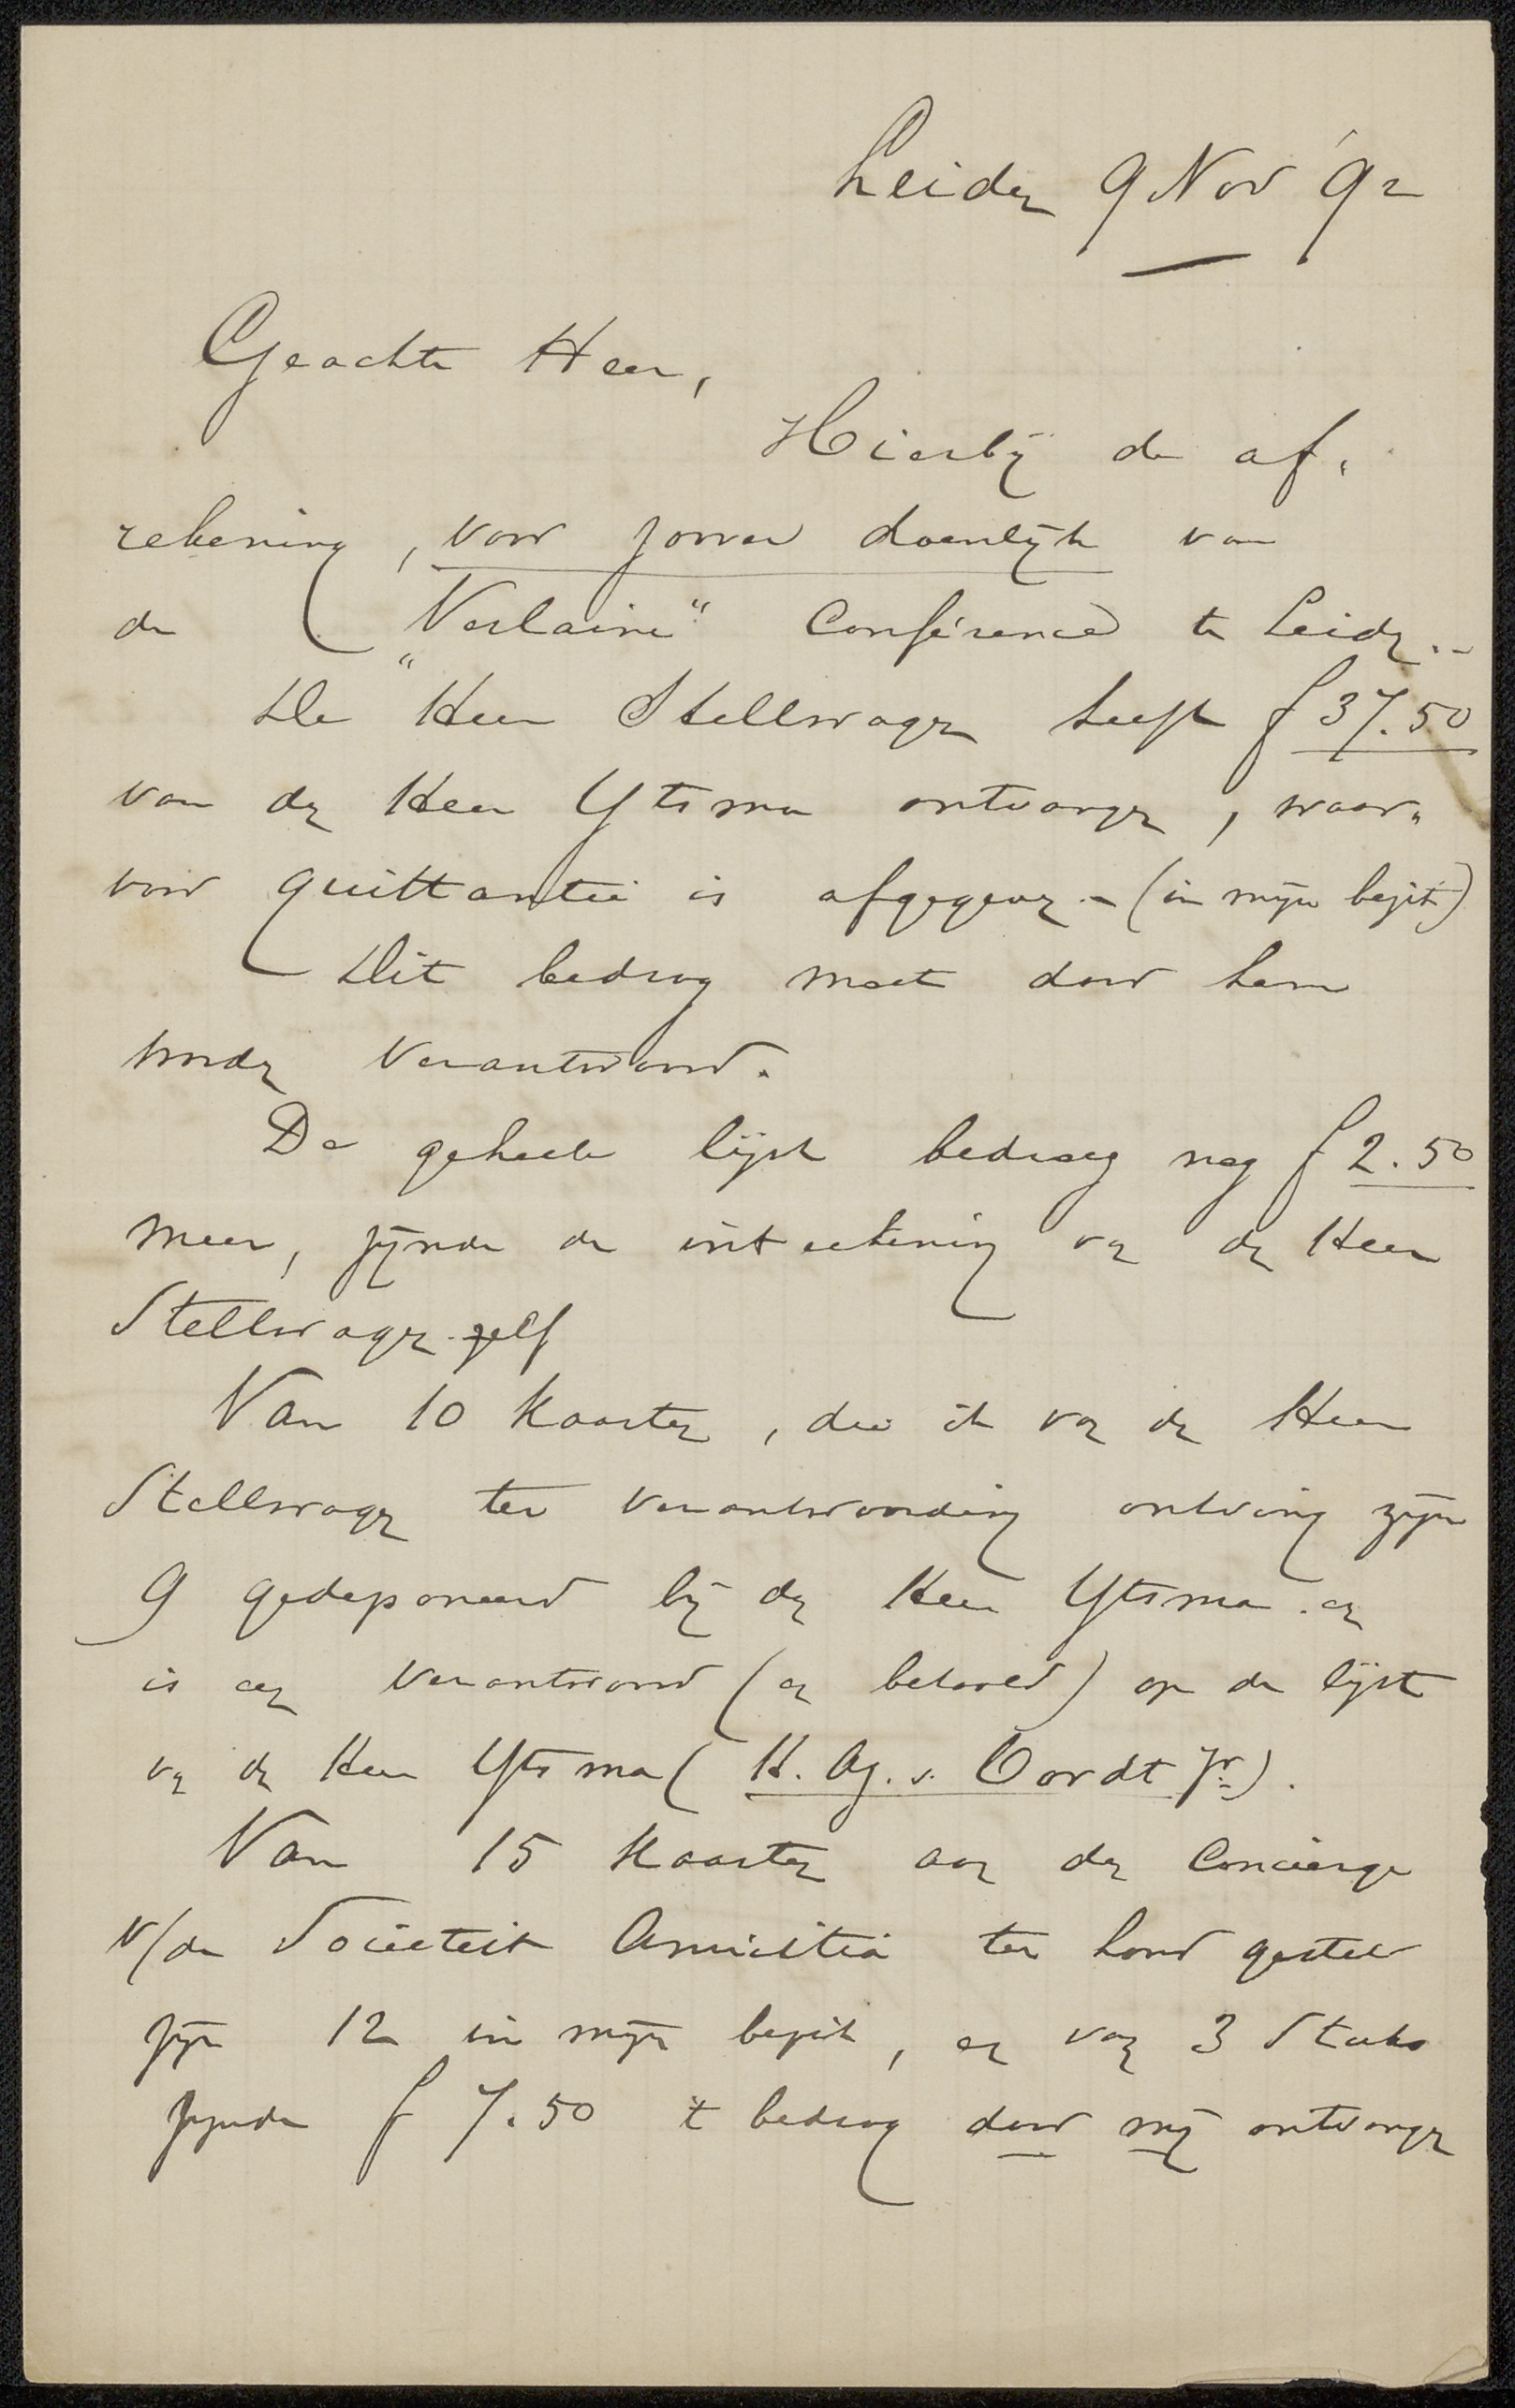 Leiden 9 Nov '92
Geachte Heer,
Hierbij de af-
rekening, voor zoover doenlijk van
de „Verlaine" Conférence te Leiden.-
De Heer Stellwagen heeft f 37.50
van den Heer Ytsma ontvangen, waar-
voor quittantie is afgegeven - (in mijn bezit)
Dit bedrag moet door hem
worden verantwoord.
De geheele lijst bedraag nog f 2.50
meer, zijnde de inteekening van den Heer
Stellwagen zelf
Van 10 kaarten, die ik van den Heer
Stellwagen ter verantwoording ontving zijn
9 gedeponeerd bij den Heer Ytsma en
is een verantwoord (en betaald) op de lijst
van den Heer Ytsma (H. Aj. v. Oordt Jr.).
Van 15 kaarten aan den Concierge
v/de Societeit Amicitia ter hand gesteld
zijn 12 in mijn bezit, en van 3 Stuks
zijnde f 7.50 't bedrag door mij ontvangen